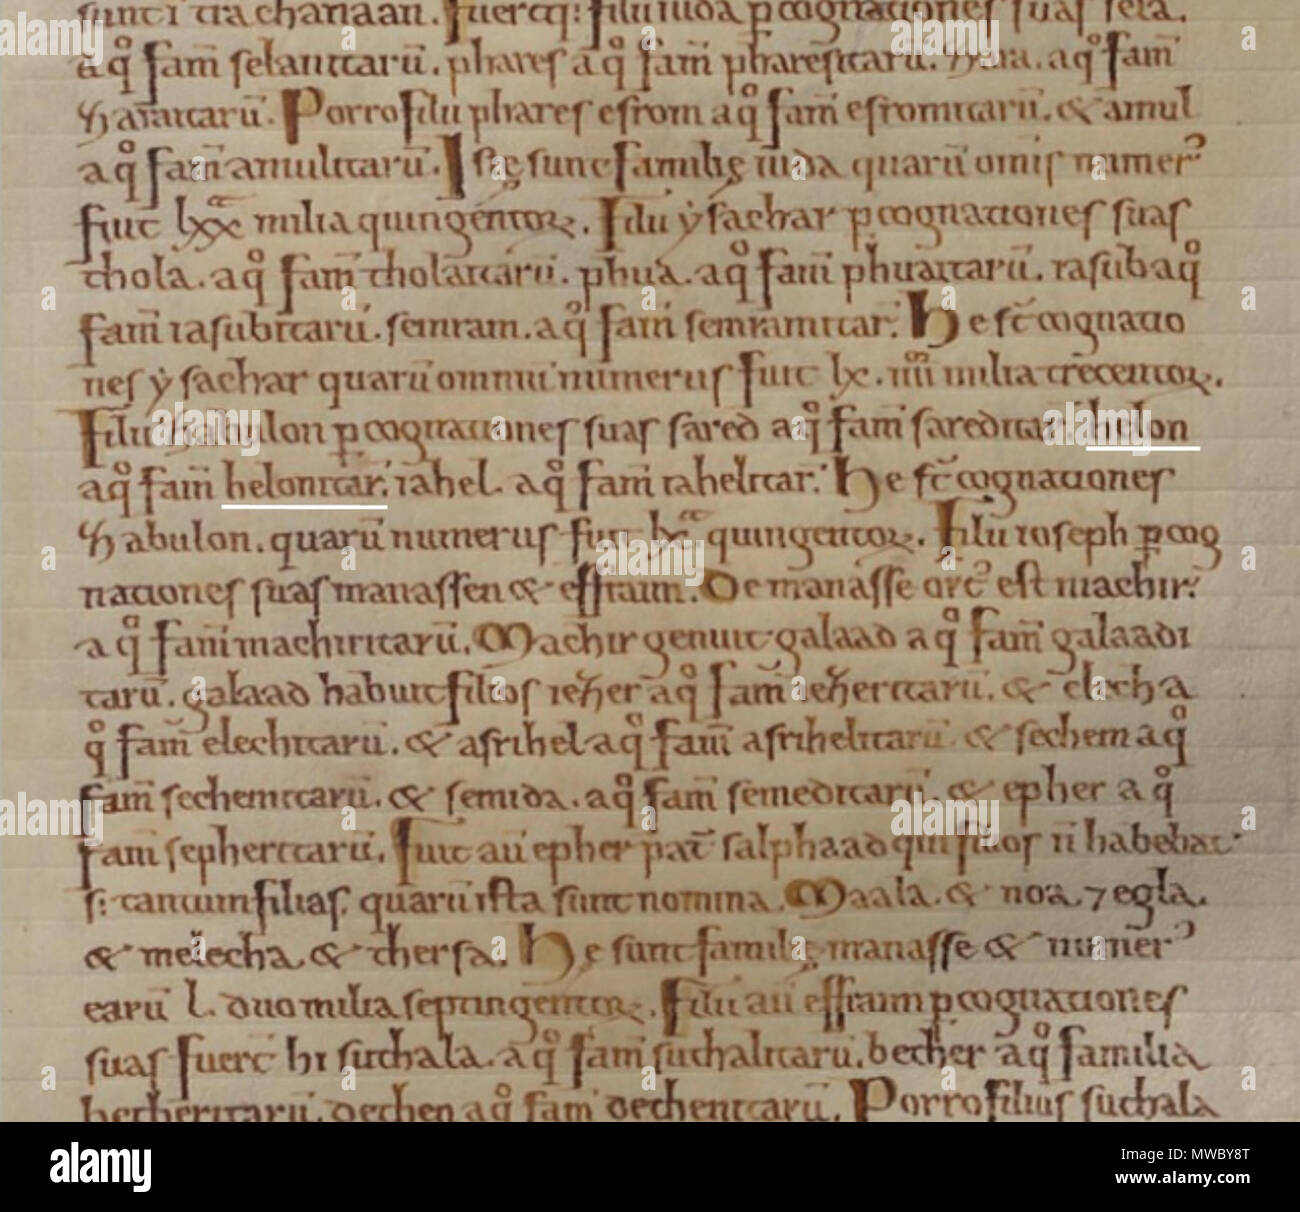 sunt ī tra chanaan. fuerq; filii iuda p cognationes suas sela.
a qͦ fam̄ selanitarū. phares a qͦ fam̄ pharesitarū. Zara. a qͦ fam̄
Zaraitarū. Porro filii phares esrom a qͦ fam̄ esromitarū. & amul
a qͦ fam̄ amulitarū. Istę sunt familię iuda quarū om̄is numer᾽
fuit lxx milia quingentoꝝ. Filii ẏsachar p cognationes suas
thola. a qͦ fam̄ tholaitarū. phua. a qͦ fam̄ phuaitarū. iasub a qͦ
fam̄ iasubitarū. semram. a qͦ fam̄ semramitar᾽. He st̄ cognatio
nes ẏsachar quarū omniū numerus fuit lx. iiii milia trecentoꝝ.
Filii Zabulon p cognationes suas sared a qͦ fam̄ sareditar᾽. helon
a qͦ fam̄ helonitar᾽. iahel. a qͦ fam̄ iahelitar᾽. He st̄ cognationes
Zabulon. quarū numerus fuit lx quingentoꝝ. Filii ioseph p cog
nationes suas manassen & effraim. De manasse ort᾽ est machir᾽
a qͦ fam̄ machiritarū. Machir genuit galaad a qͦ fam̄ galaadi
tarū. galaad habuit filios iezer a qͦ fam̄ iezeritarū. & elech a
qͦ fam̄ elechitarū. & asrihel a qͦ fam̄ asrihelitarū. & sechem a qͦ
fam̄ sechemitarū. & semida. a qͦ fam̄ semeditarū. & epher a qͦ
fam̄ sepheritarū. Fuit aū epher pat̄ salphaad qui filios n̄ habebat
s; tantum filias. quarū ista sunt nomina. Maala. & noa. ⁊ egla.
& melecha & thersa. He sunt familię manasse & numer᾽
earū l. duo milia septingentoꝝ. Filii aū effraim p cognationes
suas fuert̄ hi suthala. a qͦ fam̄ suthalitarū. becher a qͦ familia
becheritarū. thehen a qͦ fam̄ thehenitarū. Porro filius suthala
alamy
Image ID: MWBY8T
www.alamy.com